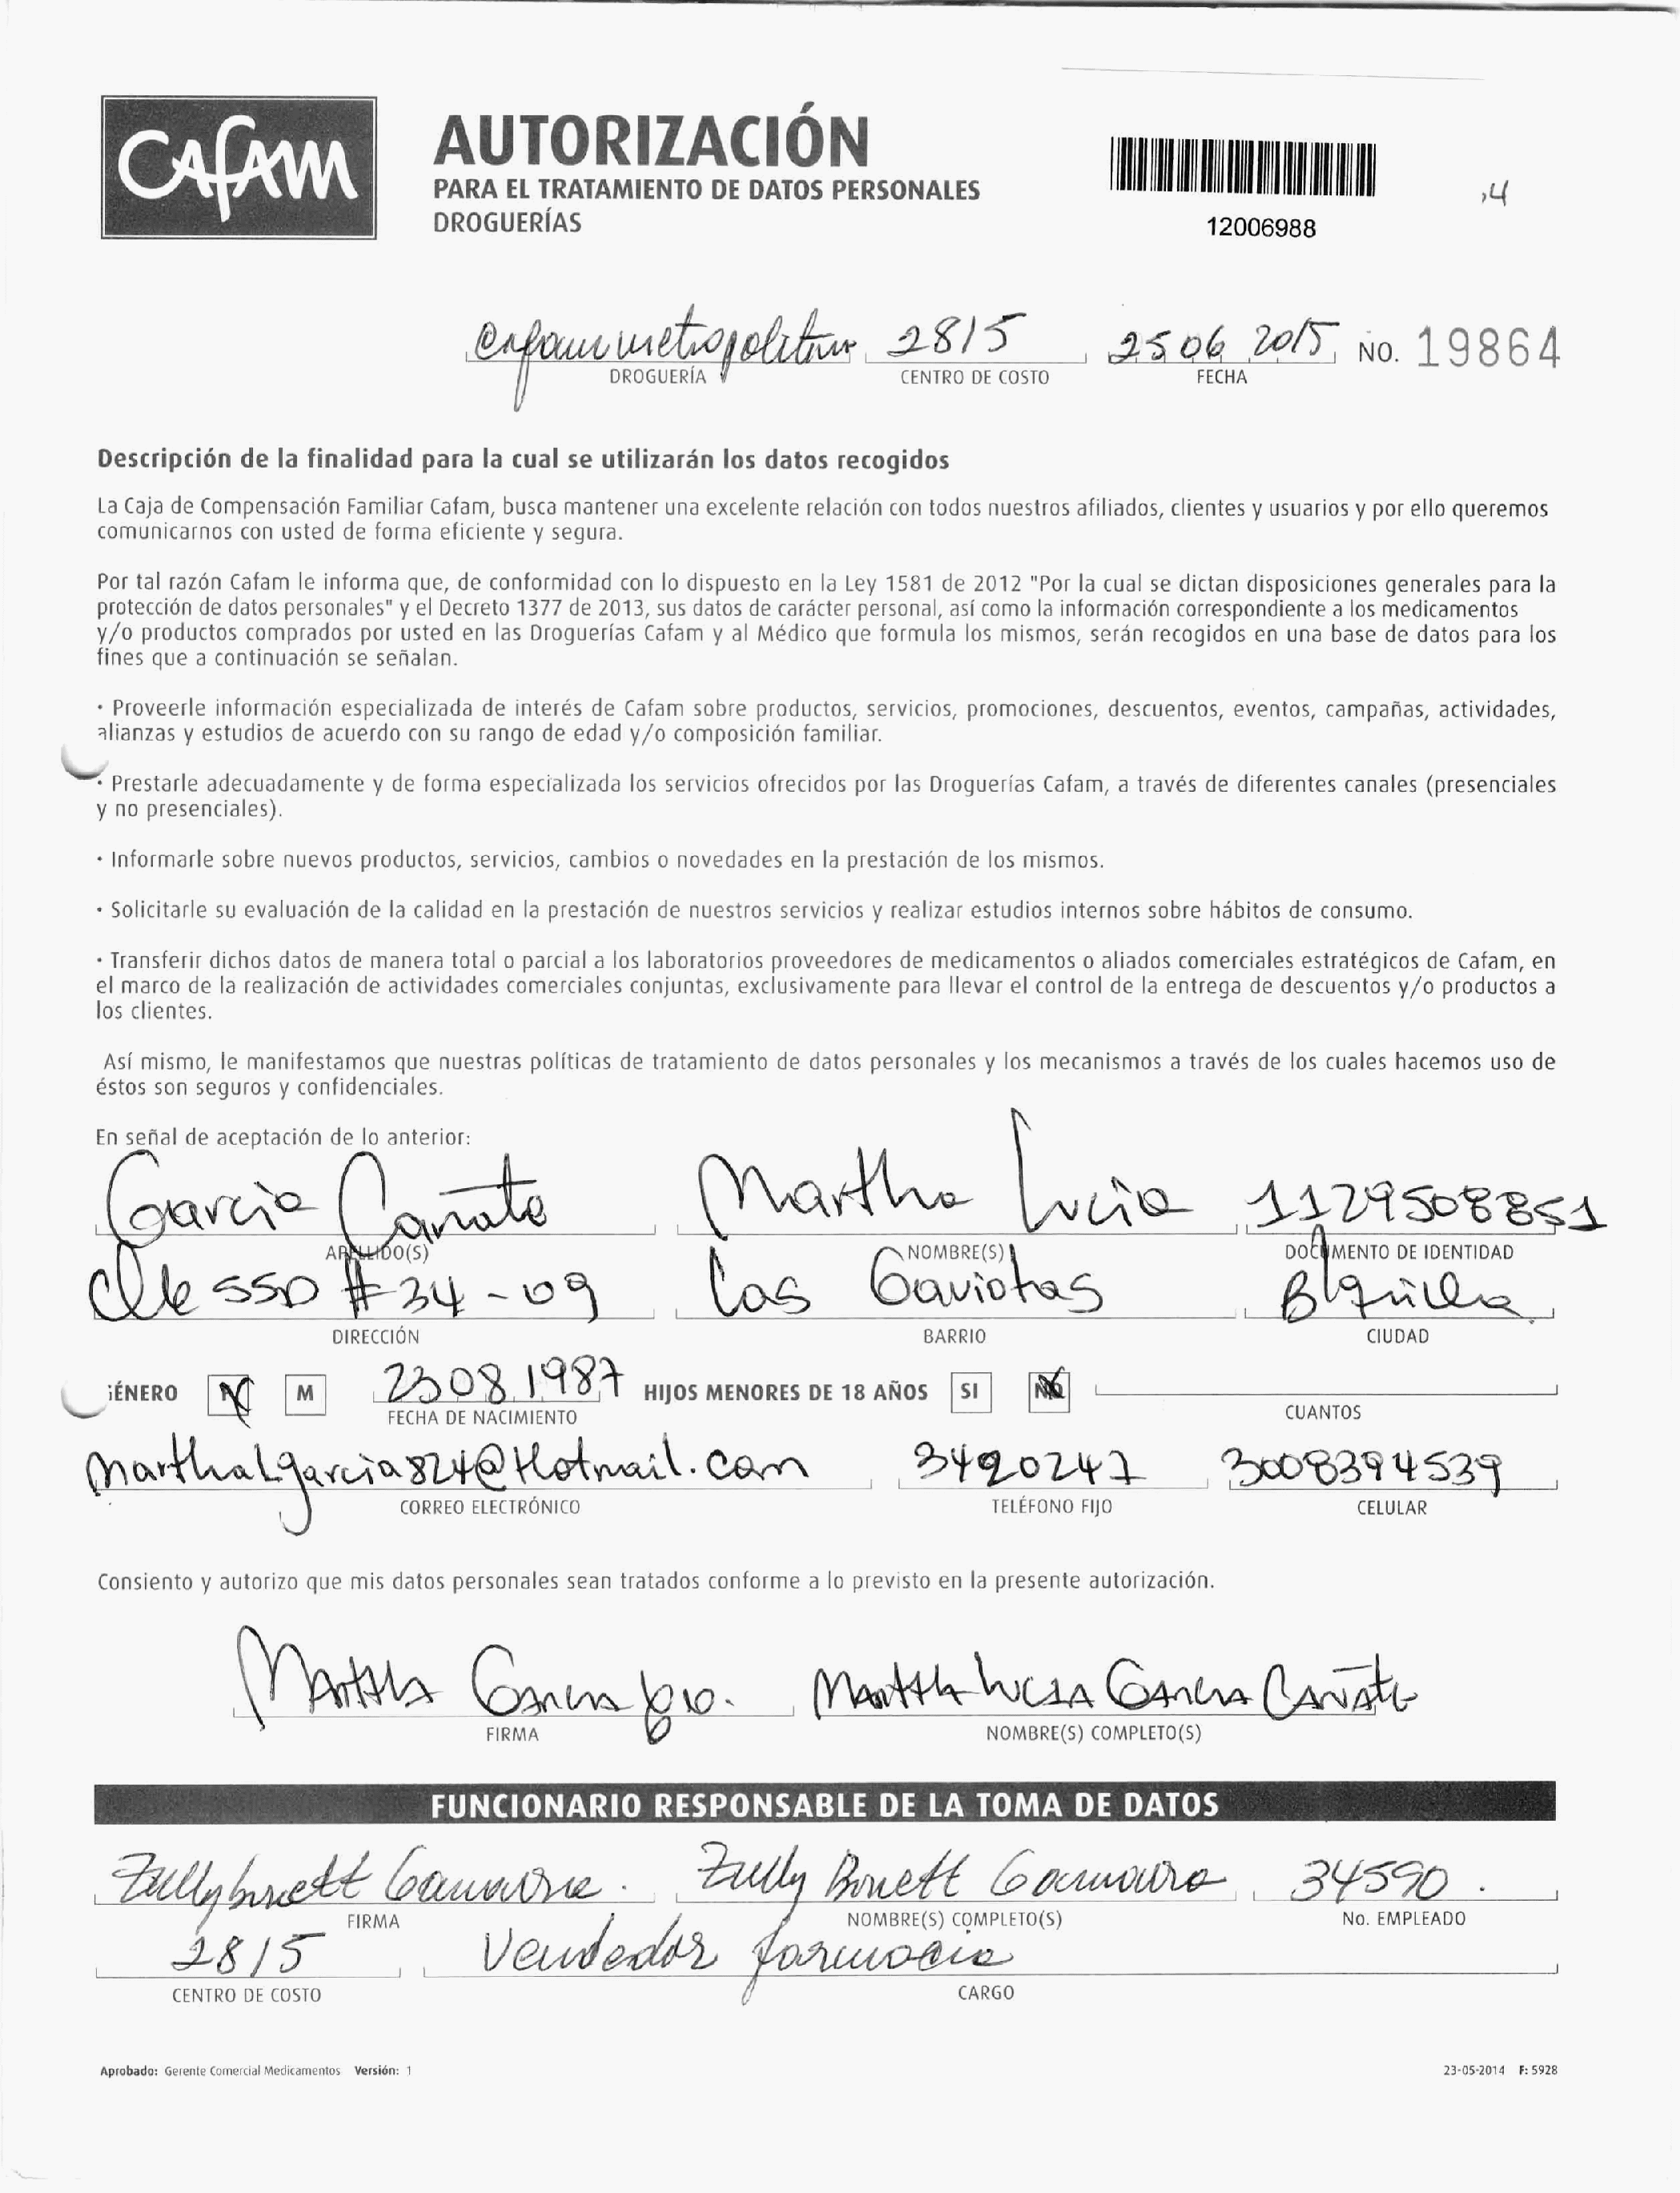 Cafam
AUTORIZACIÓN
PARA EL TRATAMIENTO DE DATOS PERSONALES
DROGUERÍAS
12006988
,4
Cafam metropolitano 2815 25 06 2015 NO. 19864
DROGUERÍA CENTRO DE COSTO FECHA
Descripción de la finalidad para la cual se utilizarán los datos recogidos
La Caja de Compensación Familiar Cafam, busca mantener una excelente relación con todos nuestros afiliados, clientes y usuarios y por ello queremos
comunicarnos con usted de forma eficiente y segura.
Por tal razón Cafam le informa que, de conformidad con lo dispuesto en la Ley 1581 de 2012 "Por la cual se dictan disposiciones generales para la
protección de datos personales" y el Decreto 1377 de 2013, sus datos de carácter personal, así como la información correspondiente a los medicamentos
y/o productos comprados por usted en las Droguerías Cafam y al Médico que formula los mismos, serán recogidos en una base de datos para los
fines que a continuación se señalan.
· Proveerle información especializada de interés de Cafam sobre productos, servicios, promociones, descuentos, eventos, campañas, actividades,
alianzas y estudios de acuerdo con su rango de edad y/o composición familiar.
· Prestarle adecuadamente y de forma especializada los servicios ofrecidos por las Droguerías Cafam, a través de diferentes canales (presenciales
y no presenciales).
· Informarle sobre nuevos productos, servicios, cambios o novedades en la prestación de los mismos.
· Solicitarle su evaluación de la calidad en la prestación de nuestros servicios y realizar estudios internos sobre hábitos de consumo.
· Transferir dichos datos de manera total o parcial a los laboratorios proveedores de medicamentos o aliados comerciales estratégicos de Cafam, en
el marco de la realización de actividades comerciales conjuntas, exclusivamente para llevar el control de la entrega de descuentos y/o productos a
los clientes.
Así mismo, le manifestamos que nuestras políticas de tratamiento de datos personales y los mecanismos a través de los cuales hacemos uso de
éstos son seguros y confidenciales.
En señal de aceptación de lo anterior:
Garcia Cañate Martha Lucia 1129508851
APELLIDO(S) NOMBRE(S) DOCUMENTO DE IDENTIDAD
Clle 55D #34-09 Las Gaviotas B/quilla
DIRECCIÓN BARRIO CIUDAD
GÉNERO F M 23 08 1987 HIJOS MENORES DE 18 AÑOS SI NO
FECHA DE NACIMIENTO CUANTOS
marthaLgarcia824@Hotmail.com 3420247 3008394539
CORREO ELECTRÓNICO TELÉFONO FIJO CELULAR
Consiento y autorizo que mis datos personales sean tratados conforme a lo previsto en la presente autorización.
Martha Garcia Martha Lucia Garcia Cañate
FIRMA NOMBRE(S) COMPLETO(S)
FUNCIONARIO RESPONSABLE DE LA TOMA DE DATOS
Zully Bonett Gamarra. Zully Bonett Gamarra 34590.
FIRMA NOMBRE(S) COMPLETO(S) No. EMPLEADO
2815 Vendedor farmacia
CENTRO DE COSTO CARGO
Aprobado: Gerente Comercial Medicamentos Versión: 1 23-05-2014 F: 5928